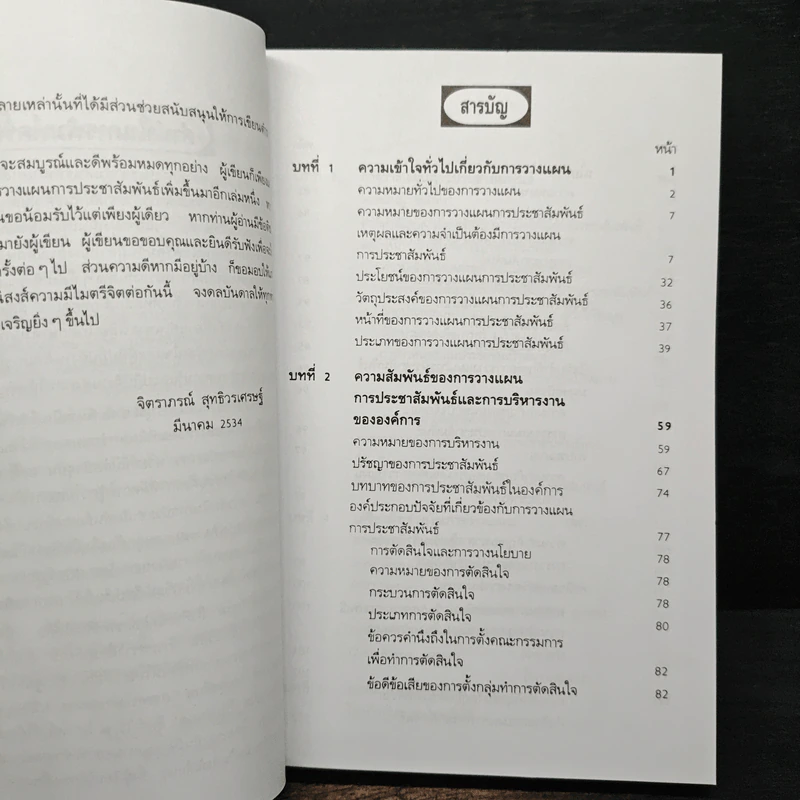 ลายเหล่านั้นที่ได้มีส่วนช่วยสนับสนุนให้การเขียน
จะสมบูรณ์และดีพร้อมหมดทุกอย่าง ผู้เขียนก็เพียง
วางแผนการประชาสัมพันธ์เพิ่มขึ้นมาอีกเล่มหนึ่ง
นขอน้อมรับไว้แต่เพียงผู้เดียว หากท่านผู้อ่านมีข้อ
มายังผู้เขียน ผู้เขียนขอขอบคุณและยินดีรับฟังเพื่อ
รั้งต่อ ๆ ไป ส่วนความดีหากมีอยู่บ้าง ก็ขอมอบให้
นิสงส์ความมีไมตรีจิตต่อกันนี้ จงดลบันดาลให้ทุก
เจริญยิ่ง ๆ ขึ้นไป
จิตราภรณ์ สุทธิวรเศรษฐ์
มีนาคม 2534
สารบัญ
หน้า
บทที่ 1 ความเข้าใจทั่วไปเกี่ยวกับการวางแผน 1
ความหมายทั่วไปของการวางแผน 2
ความหมายของการวางแผนการประชาสัมพันธ์ 7
เหตุผลและความจำเป็นต้องมีการวางแผน
การประชาสัมพันธ์ 7
ประโยชน์ของการวางแผนการประชาสัมพันธ์ 32
วัตถุประสงค์ของการวางแผนการประชาสัมพันธ์ 36
หน้าที่ของการวางแผนการประชาสัมพันธ์ 37
ประเภทของการวางแผนการประชาสัมพันธ์ 39
บทที่ 2 ความสัมพันธ์ของการวางแผน
การประชาสัมพันธ์และการบริหารงาน
ขององค์การ 59
ความหมายของการบริหารงาน 59
ปรัชญาของการประชาสัมพันธ์ 67
บทบาทของการประชาสัมพันธ์ในองค์การ 74
องค์ประกอบปัจจัยที่เกี่ยวข้องกับการวางแผน
การประชาสัมพันธ์ 77
การตัดสินใจและการวางนโยบาย 78
ความหมายของการตัดสินใจ 78
กระบวนการตัดสินใจ 78
ประเภทการตัดสินใจ 80
ข้อควรคำนึงถึงในการตั้งคณะกรรมการ
เพื่อทำการตัดสินใจ 82
ข้อดีข้อเสียของการตั้งกลุ่มทำการตัดสินใจ 82